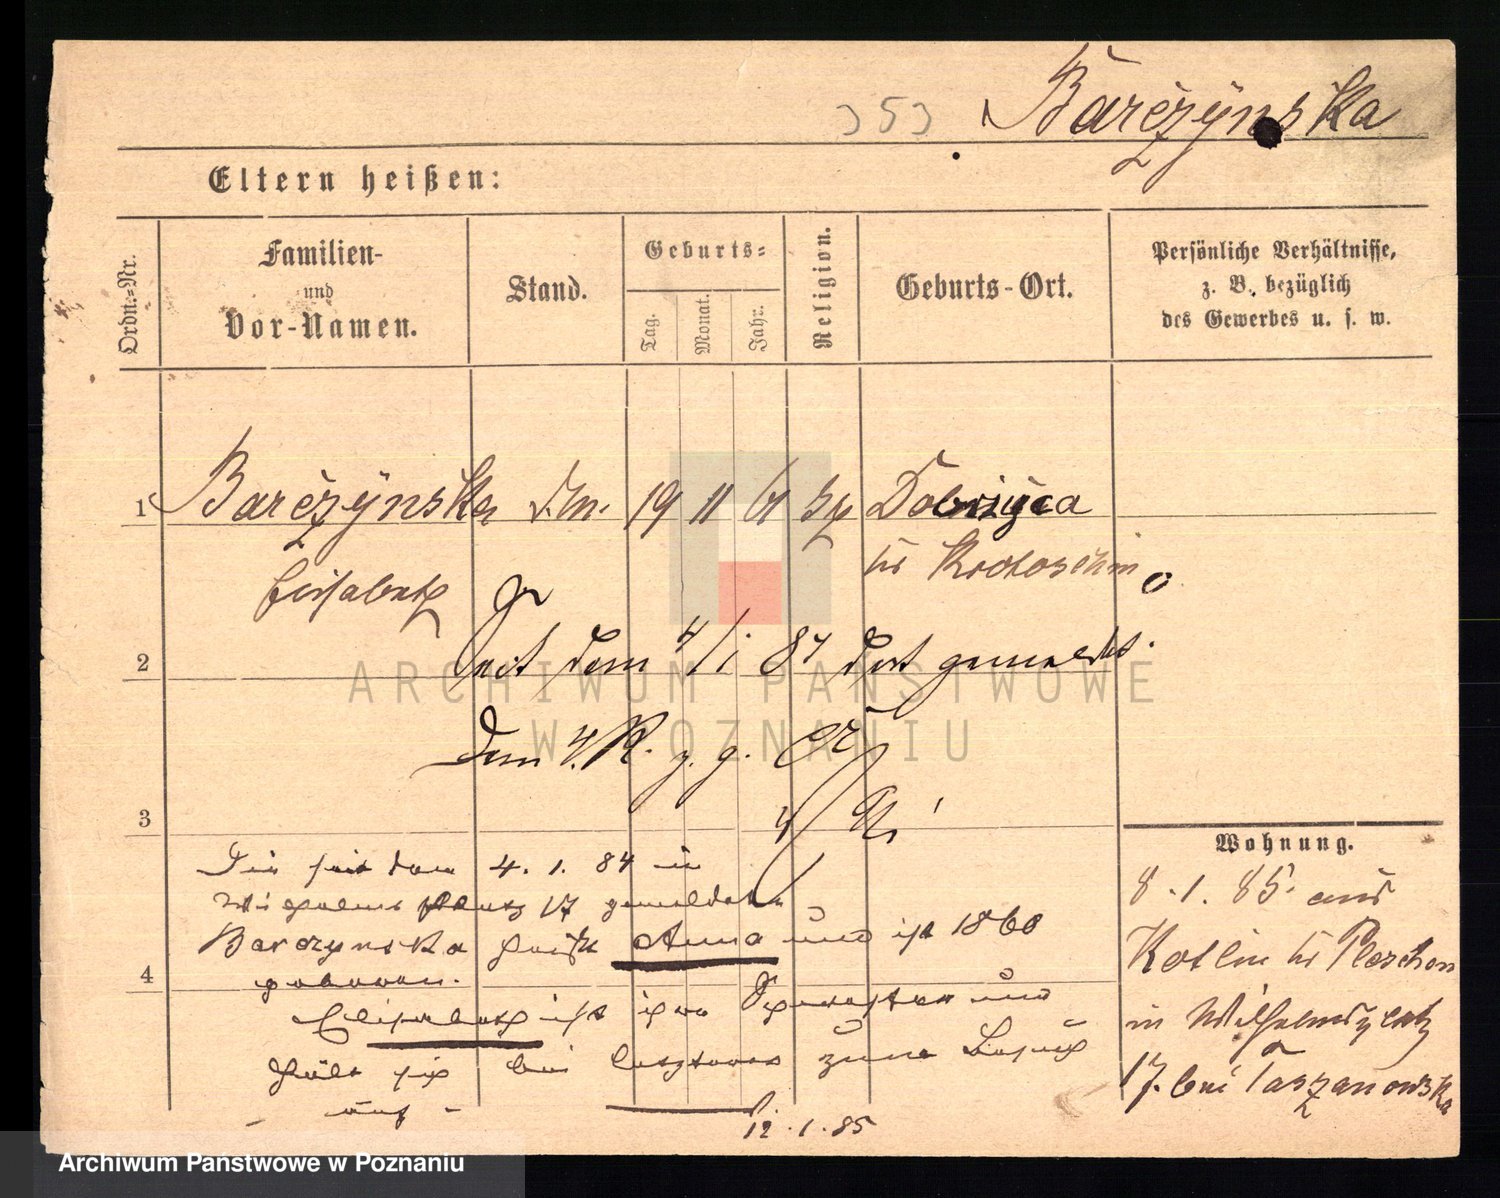 353 Barčzÿnska
Eltern heißen:
Ordn.-Nr.
Familien-
und
Vor-Namen.
Stand.
Geburts-
Tag.
Monat.
Jahr.
Religion.
Geburts-Ort.
Persönliche Verhältnisse,
z. B. bezüglich
des Gewerbes u. s. w.
1 Barčzÿnska 19 11 61 Dobrzyca
Elisabeth Kr Krotoschin
2 Seit dem 4/1 84 dort gemeldet.
ARCHIWUM PAŃSTWOWE
W POZNANIU
Dem 4. R. z. g.
3
Wohnung.
Die seit dem 4. 1. 84 in
Wilhelmsplatz 17 gemeldete
Barczynska heißt Anna und ist 1860
4 geboren.
Elisabeth ist ihre Schwester und
hält sich bei letzterer zum Besuch
- auf -
12. 1. 85
8. 1. 85. aus
Kotlin Kr Pleschen
in Wilhelmsplatz
17. bei Taszanowska
Archiwum Państwowe w Poznaniu